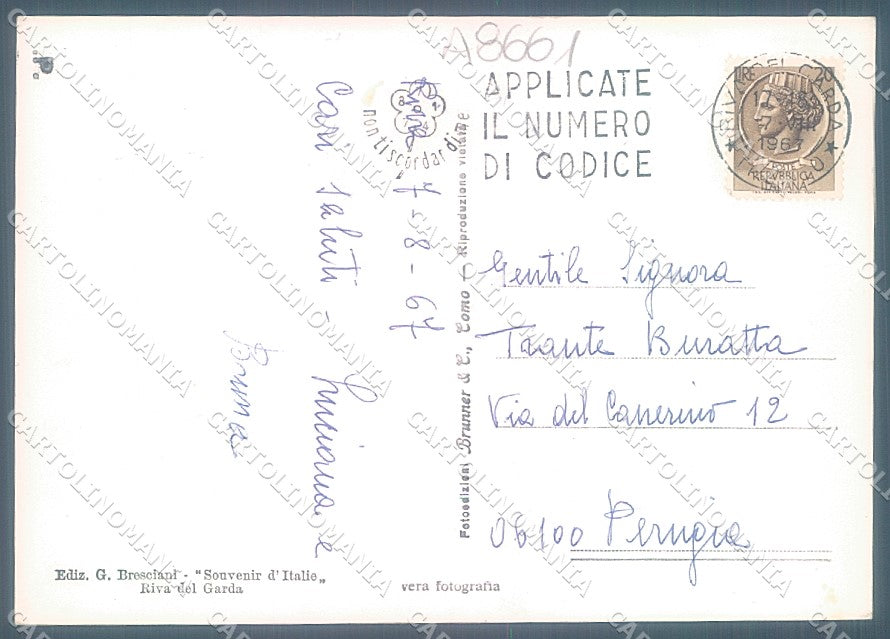 A8661
APPLICATE
IL NUMERO
DI CODICE
LIRE 20
RIVA DEL GARDA
1967
POSTE
REPVBBLICA
ITALIANA
non ti scordar di
Riva 7-8-67
Cari saluti - Luciana e
Bruna
Gentile Signora
Trante Buratta
Via del Canerino 12
06100 Perugia
Fotoedizioni Brunner & C., Como - Riproduzione vietata
Ediz. G. Bresciani - "Souvenir d'Italie„
Riva del Garda
vera fotografia
CARTOLINOMANIA